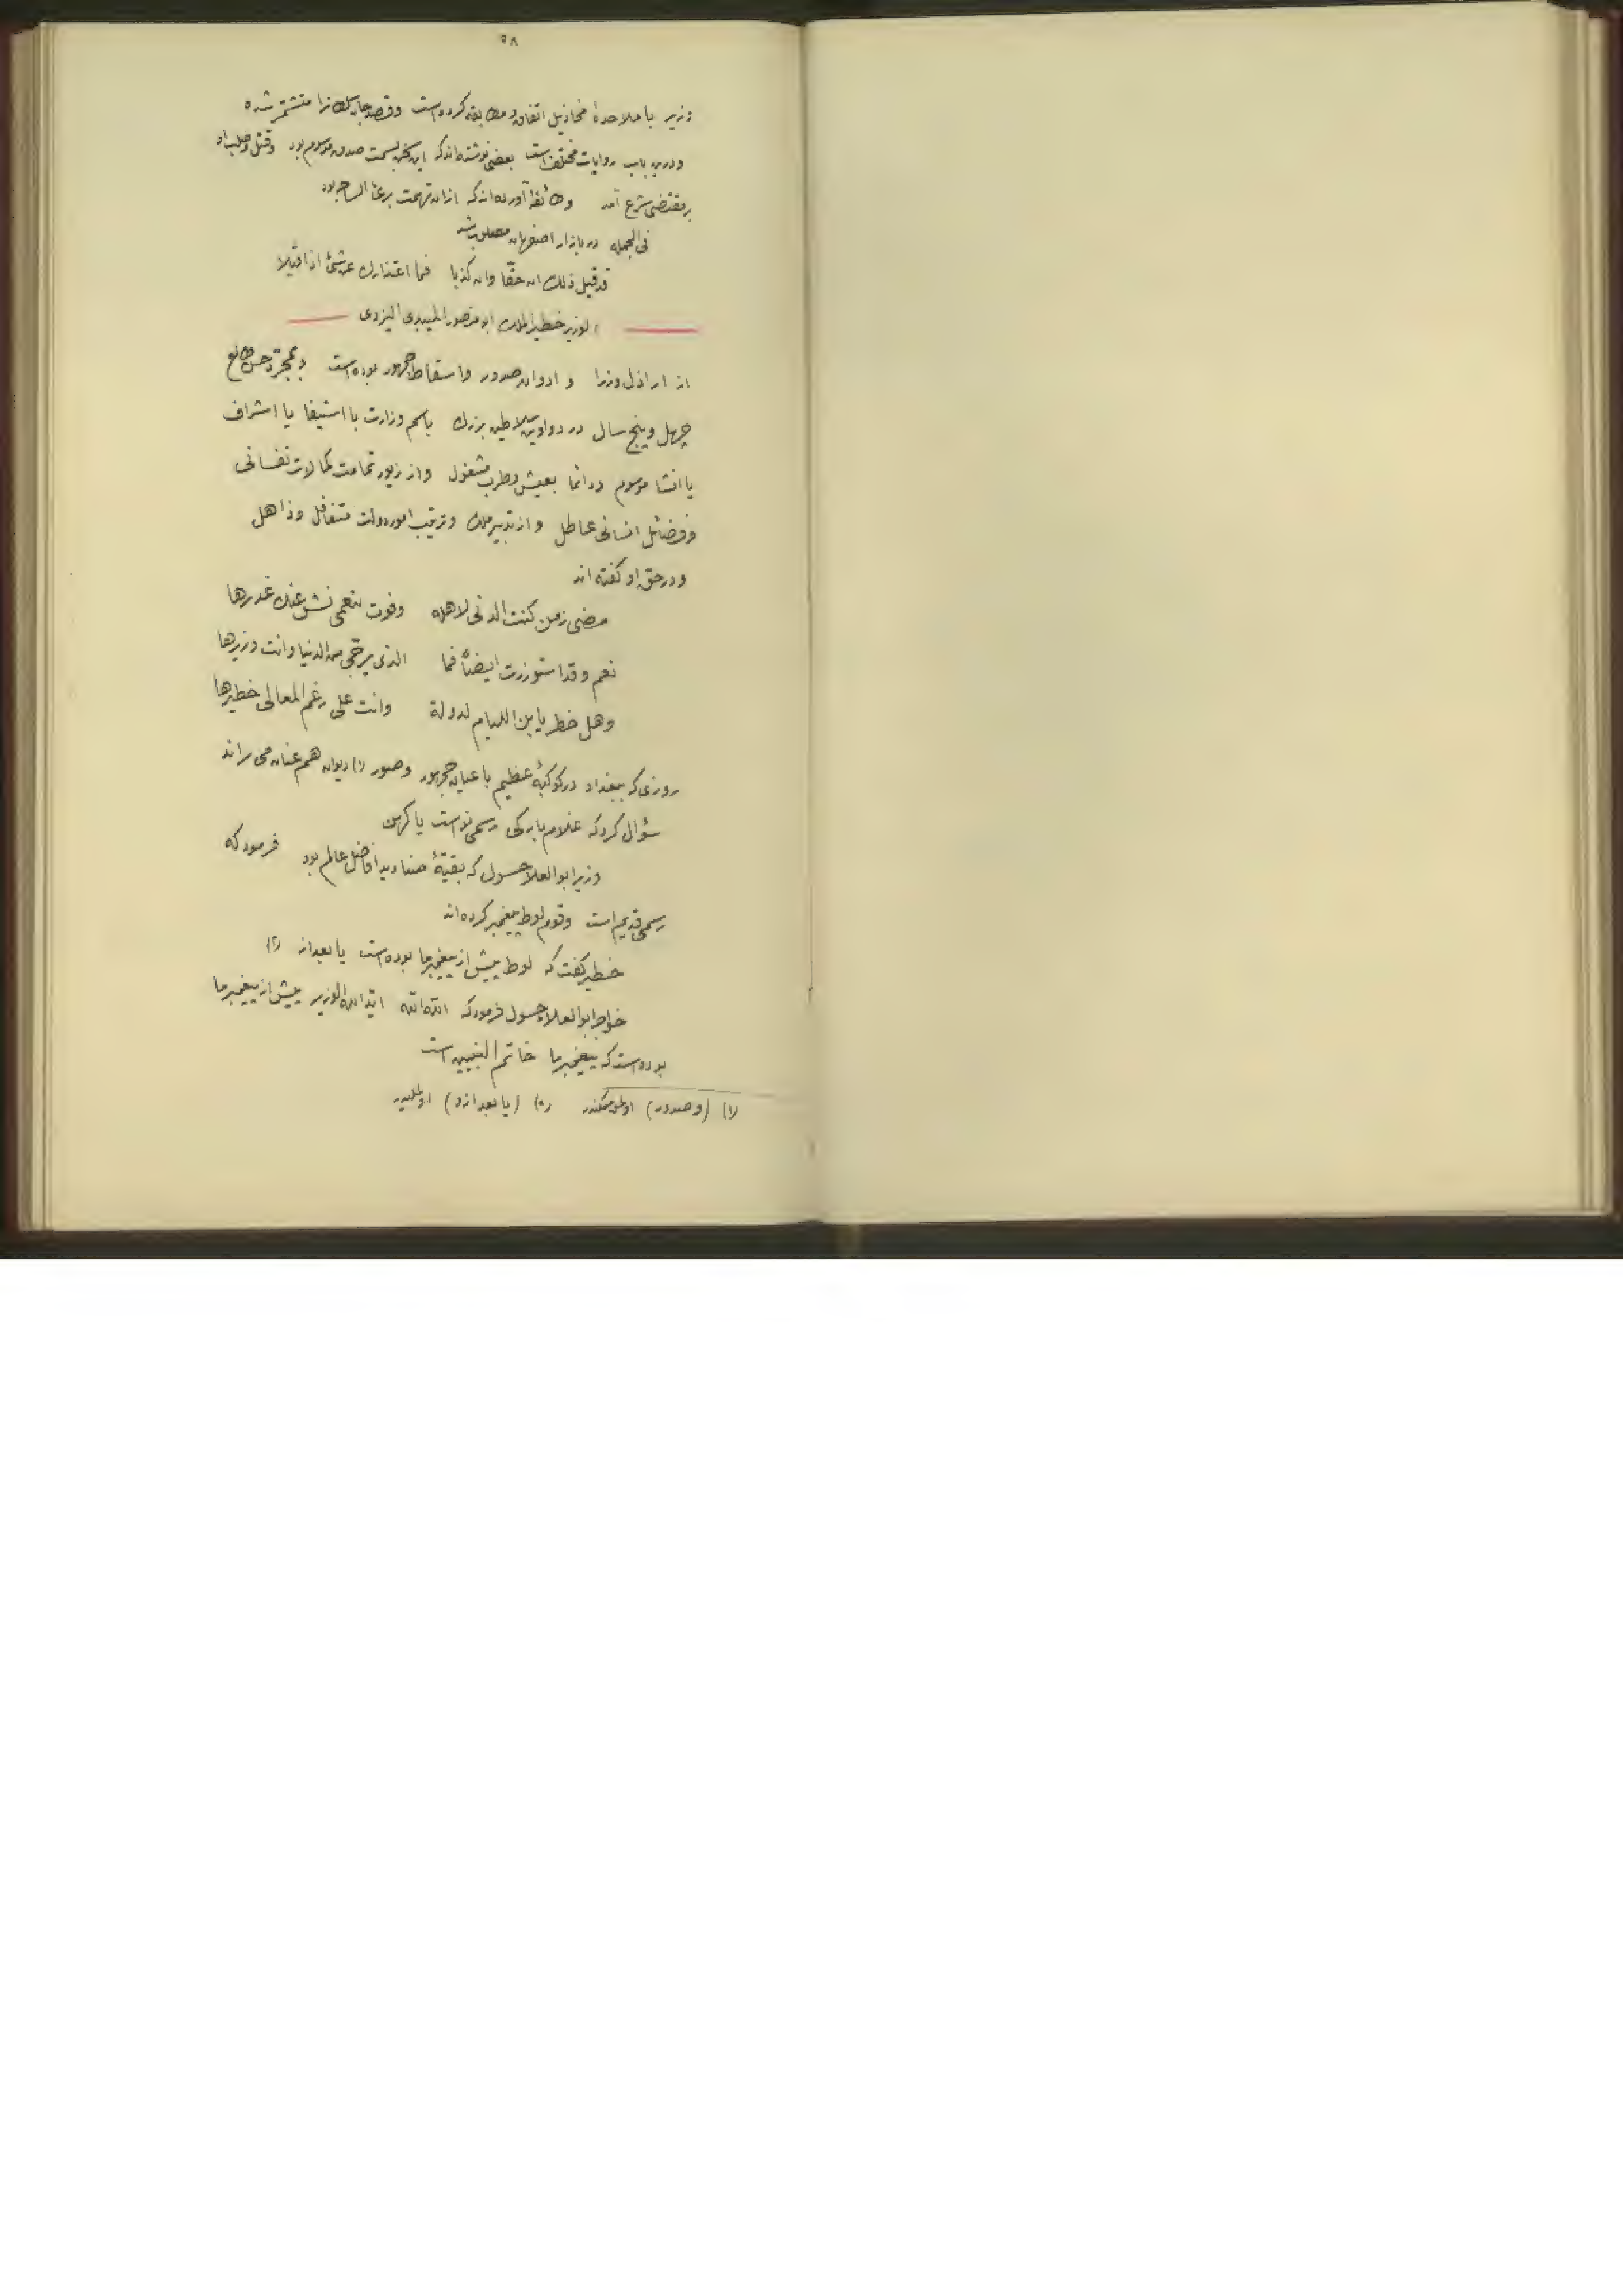 ٥٨
وزیر با ملاحدهٔ مخاذیل اتفاق و مطابقه کرده است وقصد جان سلطانرا متشمر شده
ودرین باب روایات مختلف است بعضی نوشته‌اند که این سخن بسمت صدق موسوم بود وقتل وصلب او
بر مقتضی شرع آمد وطائفهٔ آورده‌اند که ازان تهمت بریء الساحه بود
فی الجمله در بازار اصفهان مصلوب شد
قد قیل ذلك ان حقّا وان كذبا فما اعتذارك عن شیء اذا قیلا
الوزیر خطیر الملك ابو منصور المیبدی الیزدی
از اراذل وزرا و ادوان صدور واسقاط جمهور بوده است وبمجرّد حسن طالع
چهل وپنج سال در دواوین سلاطین بزرك باسم وزارت با استیفا یا اشراف
یا انشا موسوم ودائما بعیش وطرب مشغول واز زیور تمامت كمالات نفسانی
وفضائل انسانی عاطل واز تدبیر ملك وترتیب امور دولت متغافل وذاهل
ودر حق او گفته‌اند
مضی زمن كنت الدنی لاهله وفوت نعمی نش عنك غدیرها
نعم وقد استوزرت ایضاً فما الذی یرجّی من الدنیا وانت وزیرها
وهل خطر یا بن اللیام لدولة وانت علی رغم المعالی خطیرها
روزی که ببغداد در کوکبهٔ عظیم با عیان جمهور وصدور (١) دیوان هم عنان می راند
سؤال کرد که غلام بارگی رسمی نو است یا کهن
وزیر ابو العلا حسول که بقیّهٔ صنادید افاضل عالم بود فرمود که
رسمی قدیم است وقوم لوط پیغمبر کرده‌اند
خطیر گفت که لوط پیش از پیغمبر ما بوده است یا بعد از (٢)
خواجه ابو العلا حسول فرمود که اللّه اللّه ایّد اللّه الوزیر پیش از پیغمبر ما
بوده است که پیغمبر ما خاتم النبیین است
(١) (وصدور) اولق ممکندر (٢) (یا بعد ازو) اولملیدر